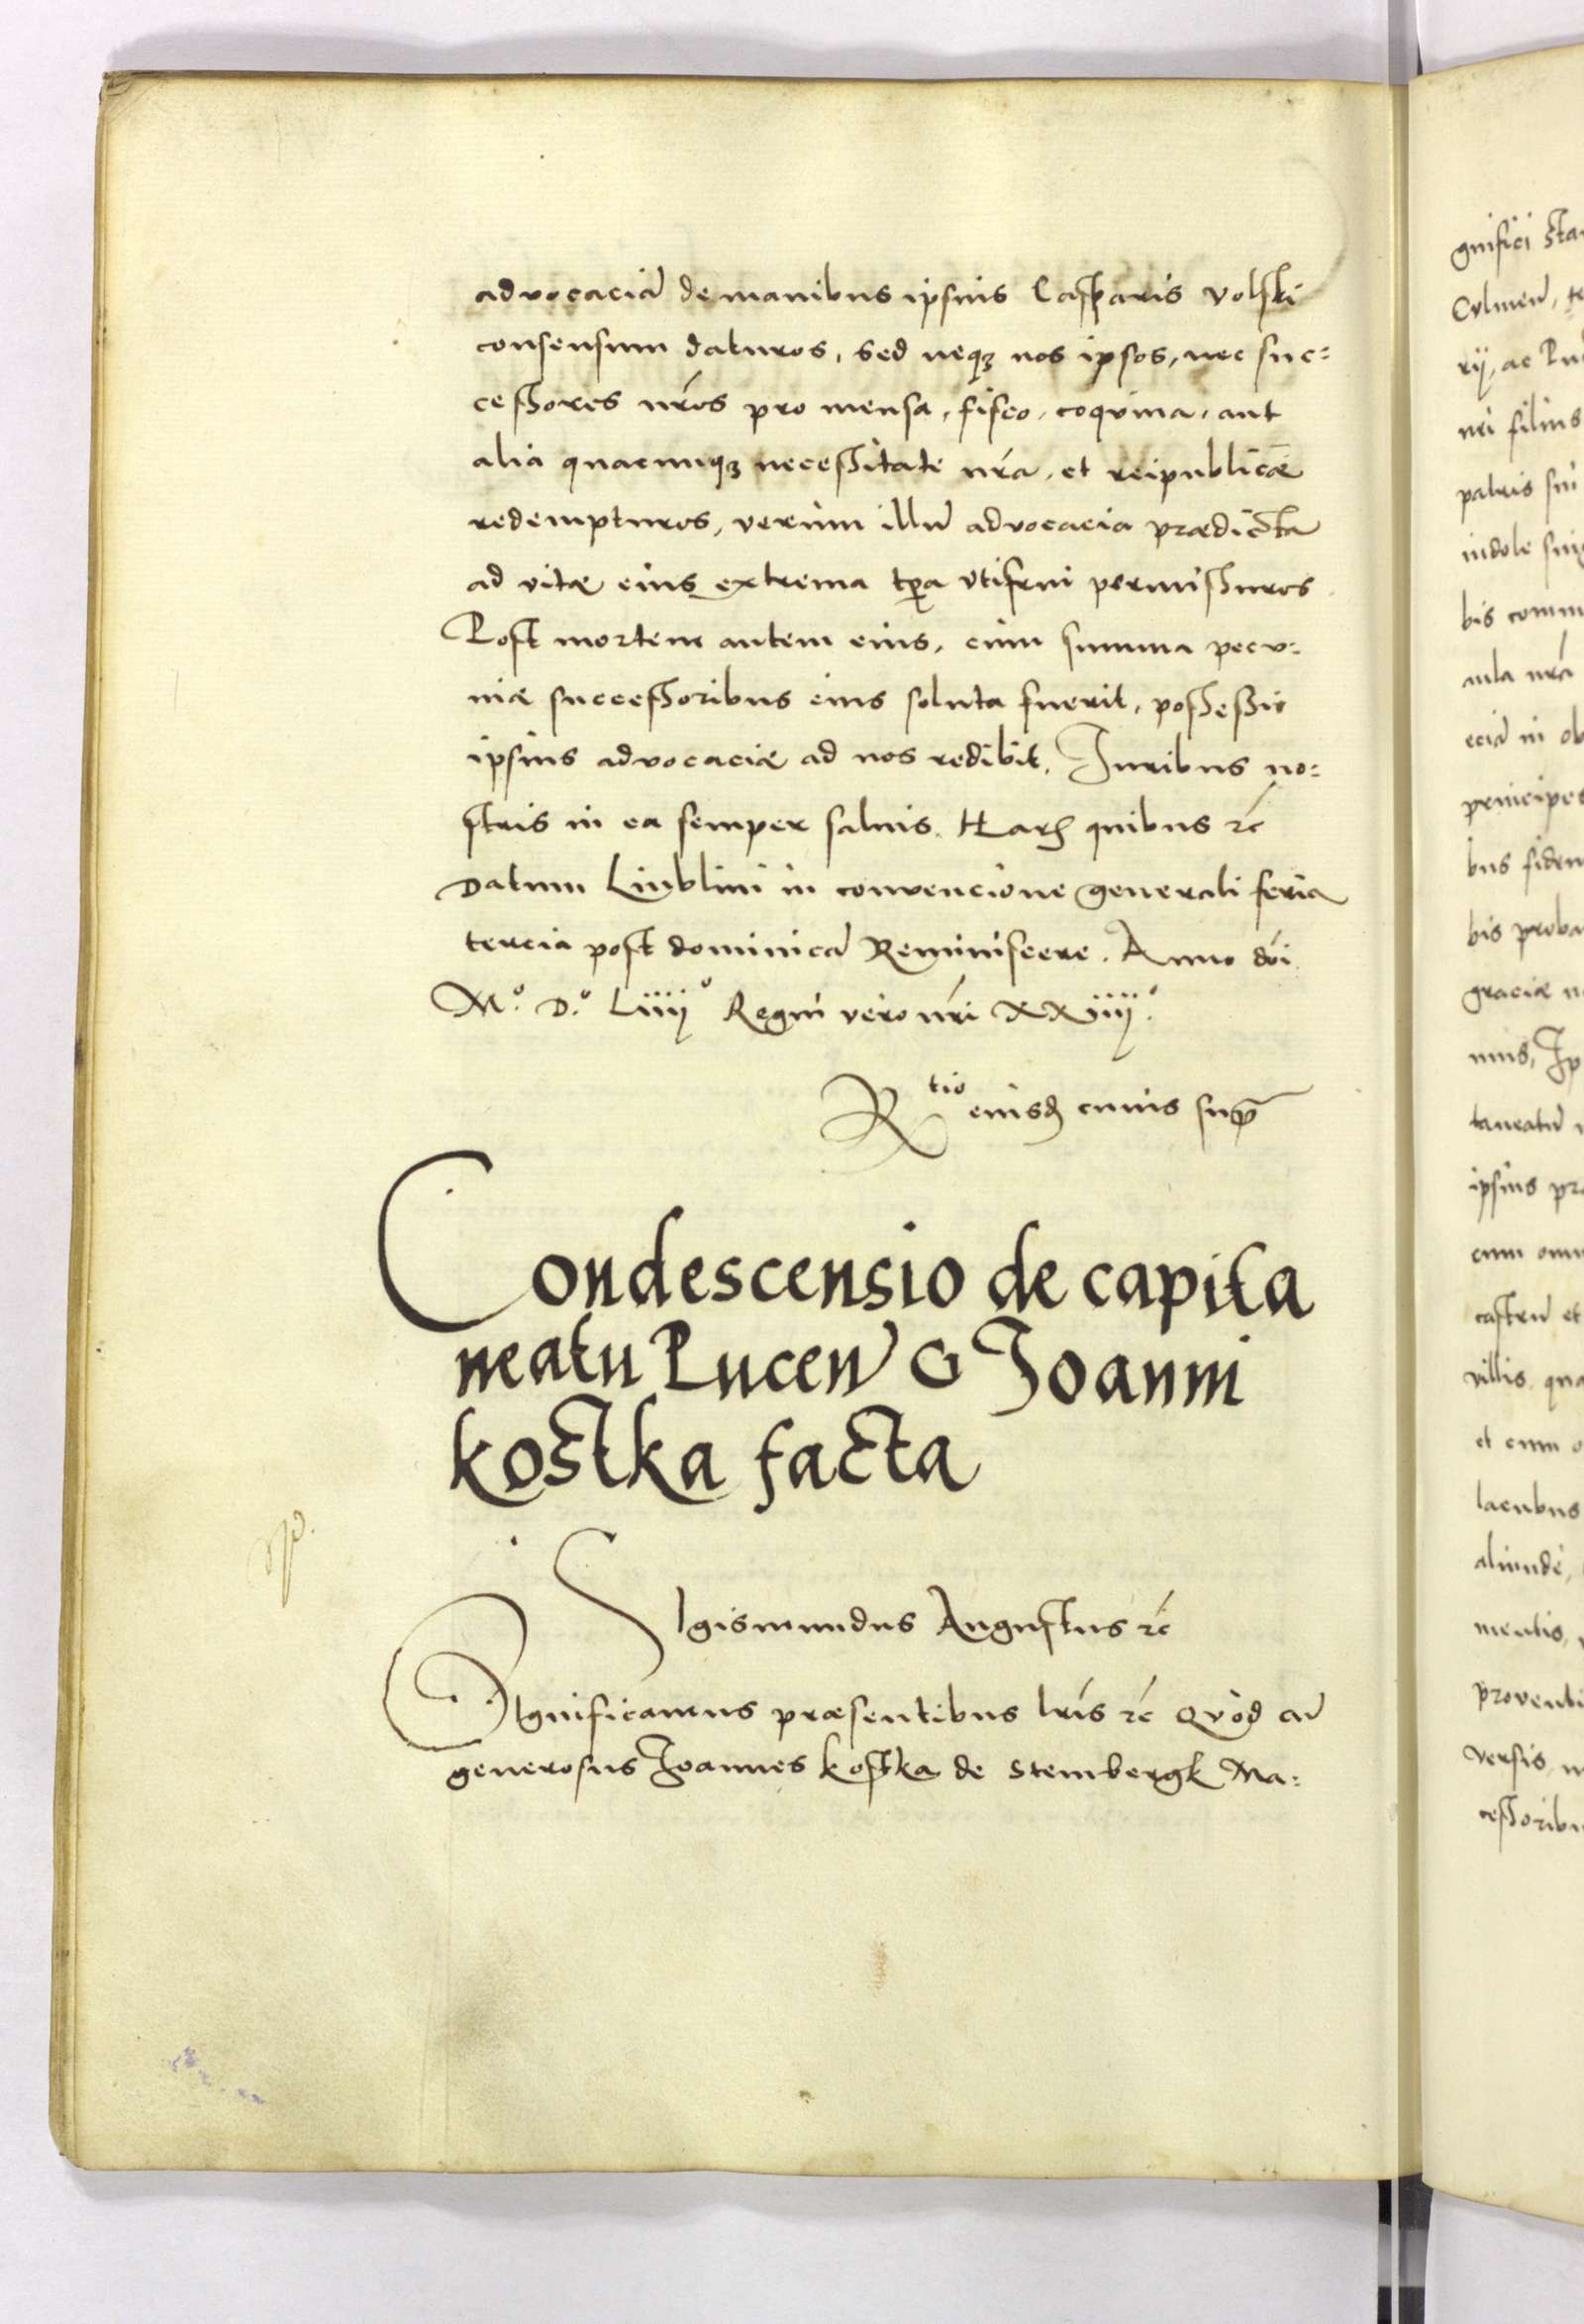 advocaciã de manibus ipsius Casparis Volski
consensum daturos, sed neqꝫ nos ipsos, nec suc=
cessores nr̃os pro mensa, fisco, coquina, aut
alia quacunqꝫ necessitate nr̃a, et reipublicæ
redempturos, verùm illũ advocacia prædicta
ad vitæ eius extrema tp̃a utifrui permissuros.
Post mortem autem eius, cùm summa pecu=
niæ successoribus eius soluta fuerit, possessio
ipsius advocaciæ ad nos redibit, Iuribus no=
stris in ea semper saluis. Harꝝ quibus ꝛc̃
Datum Liublini in convencione generali feria
tercia post dominicã Reminiscere. Anno dñi
Mº. Dº. Liiijº Regni vero nr̃i xxiiijº.
Rtio eiusdẽ cuius supᷓ
Condescensio de capita
neatu Pucen̄ G Joanni
kostka facta
SIgismundus Augustus ꝛc̃
SIgnificamus præsentibus lr̃is ꝛc̃ Quòd cũ
generosus Joannes kostka de Stembergk Ma=
gnifici Sta
Culmen̄,
rij, ac Pu
nri filius
patris sui
indole
bis comm
aula nr̃a
eciã in ob
principes
bus fidem
bis proba
graciæ n
mus, Ip
taneatũ
ipsius pr
cum omn
castrũ et
villis, qua
et cum o
lacubus
aliunde,
mentis,
proventi
versis,
cessoribu